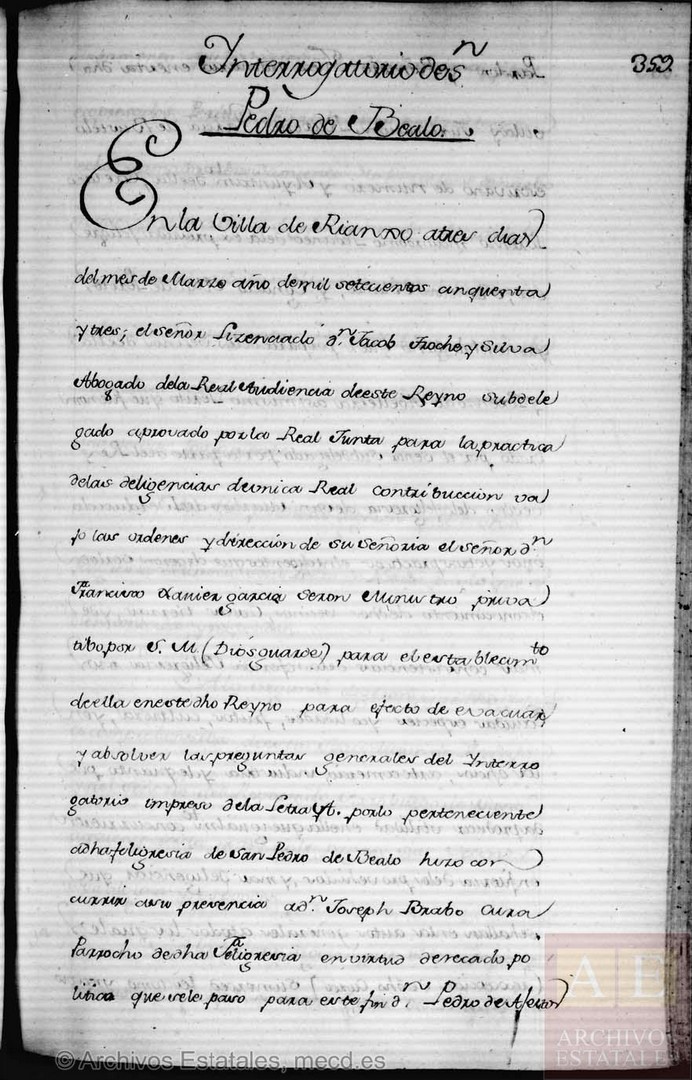 Interrogatorio de sn
359.
Pedro de Bealo.
En la Villa de Rianxo atres dias
del mes de Marzo año de mil setecientos cinquenta
y tres; el señor Lizenciado dn. Jacob Troche y Silva
Abogado dela Real Audiencia deeste Reyno subdele
gado aprovado por la Real Junta para la practica
delas deligencias deunica Real contribuccion va
jo las ordenes y direccion de su señoria el señor dn
Francisco Xavier garcia seron Ministro priva
tibo por S. M. (Dios guarde) para el establecimto
deella eneste dho Reyno para efecto de evacuar
y absolver las preguntas generales del Interro
gatorio impreso dela Letra A. porlo perteneciente
adha feligresia de San Pedro de Bealo hizo con
currir asu presencia a dn. Joseph Brabo Cura
Parrocho de dha Feligresia en virtud de recado po
litico que sele paso para este fin dn. Pedro de
© Archivos Estatales, mecd.es
AE
ARCHIVOS
ESTATALES